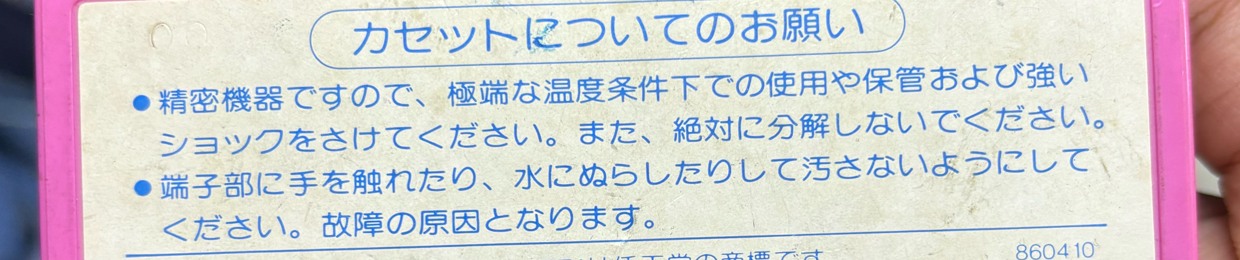 カセットについてのお願い
●精密機器ですので、極端な温度条件下での使用や保管および強い
ショックをさけてください。また、絶対に分解しないでください。
●端子部に手を触れたり、水にぬらしたりして汚さないようにして
ください。故障の原因となります。
は任天堂の商標です
860410